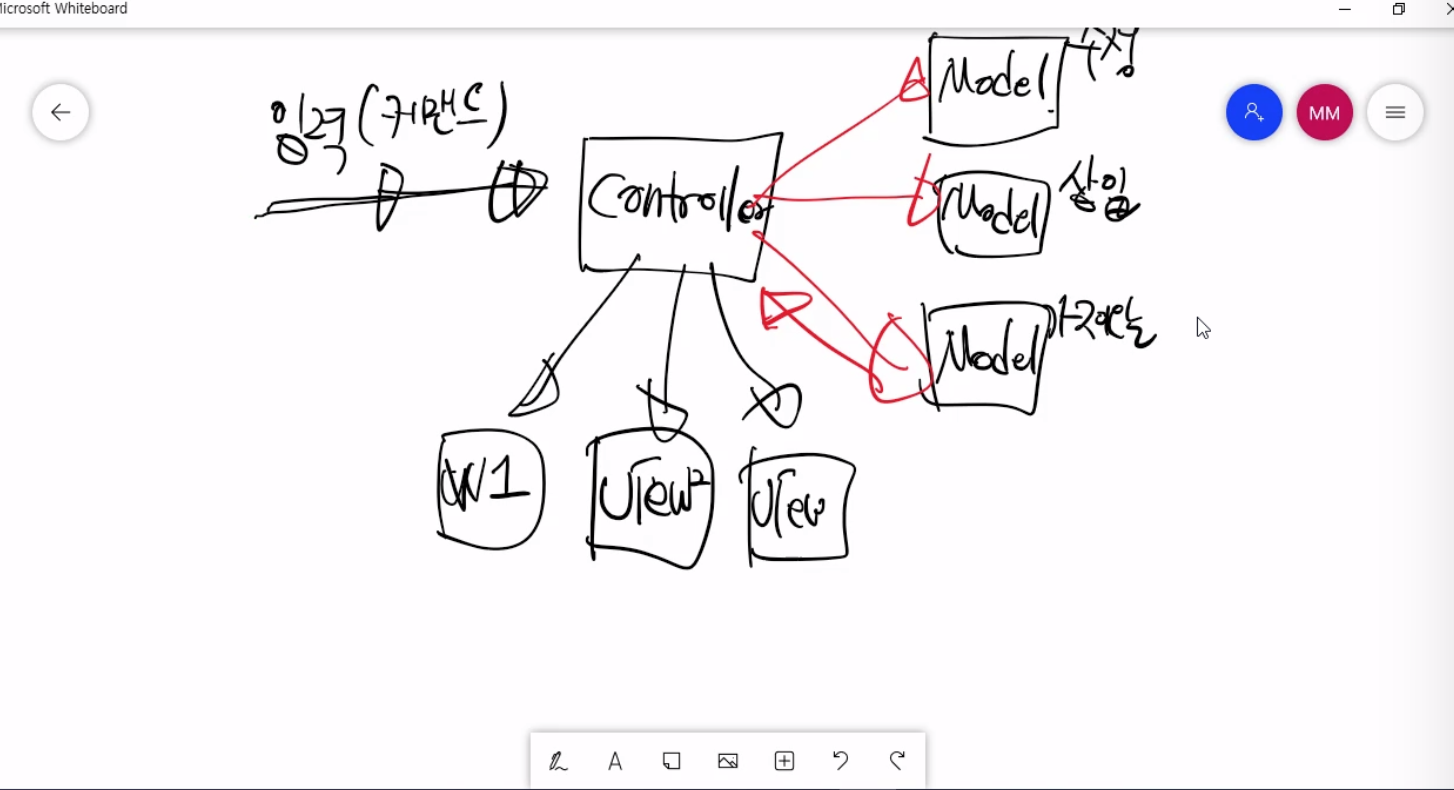 Microsoft Whiteboard
MM
입력 (커맨드)
Controller
Model
수정
Model
Model
W1
View2
View